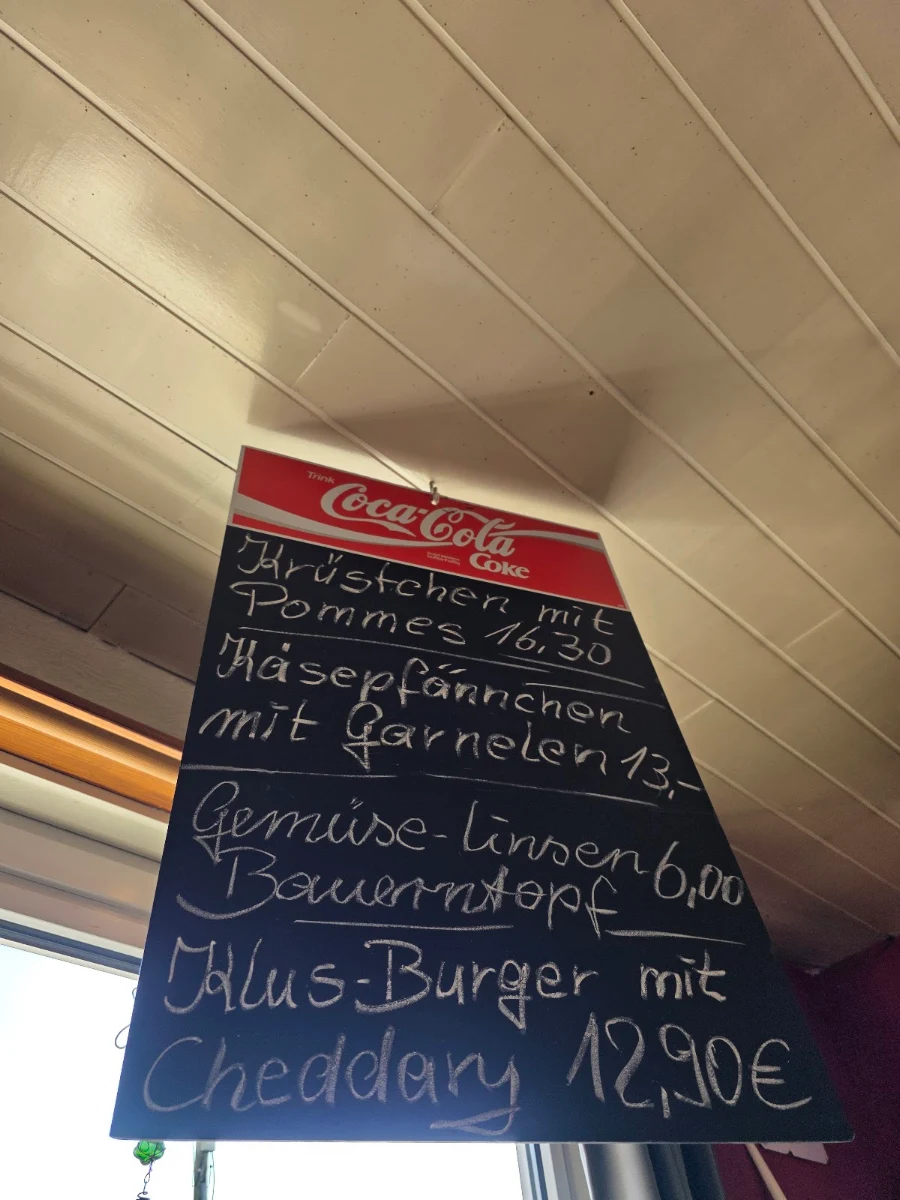 Trink
Coca-Cola
Coke
Krüstchen mit
Pommes 16,30
Käsepfännchen
mit Garnelen 13,-
Gemüse-Linsen 6,00
Bauerntopf
Klus-Burger mit
Cheddary 12,90€